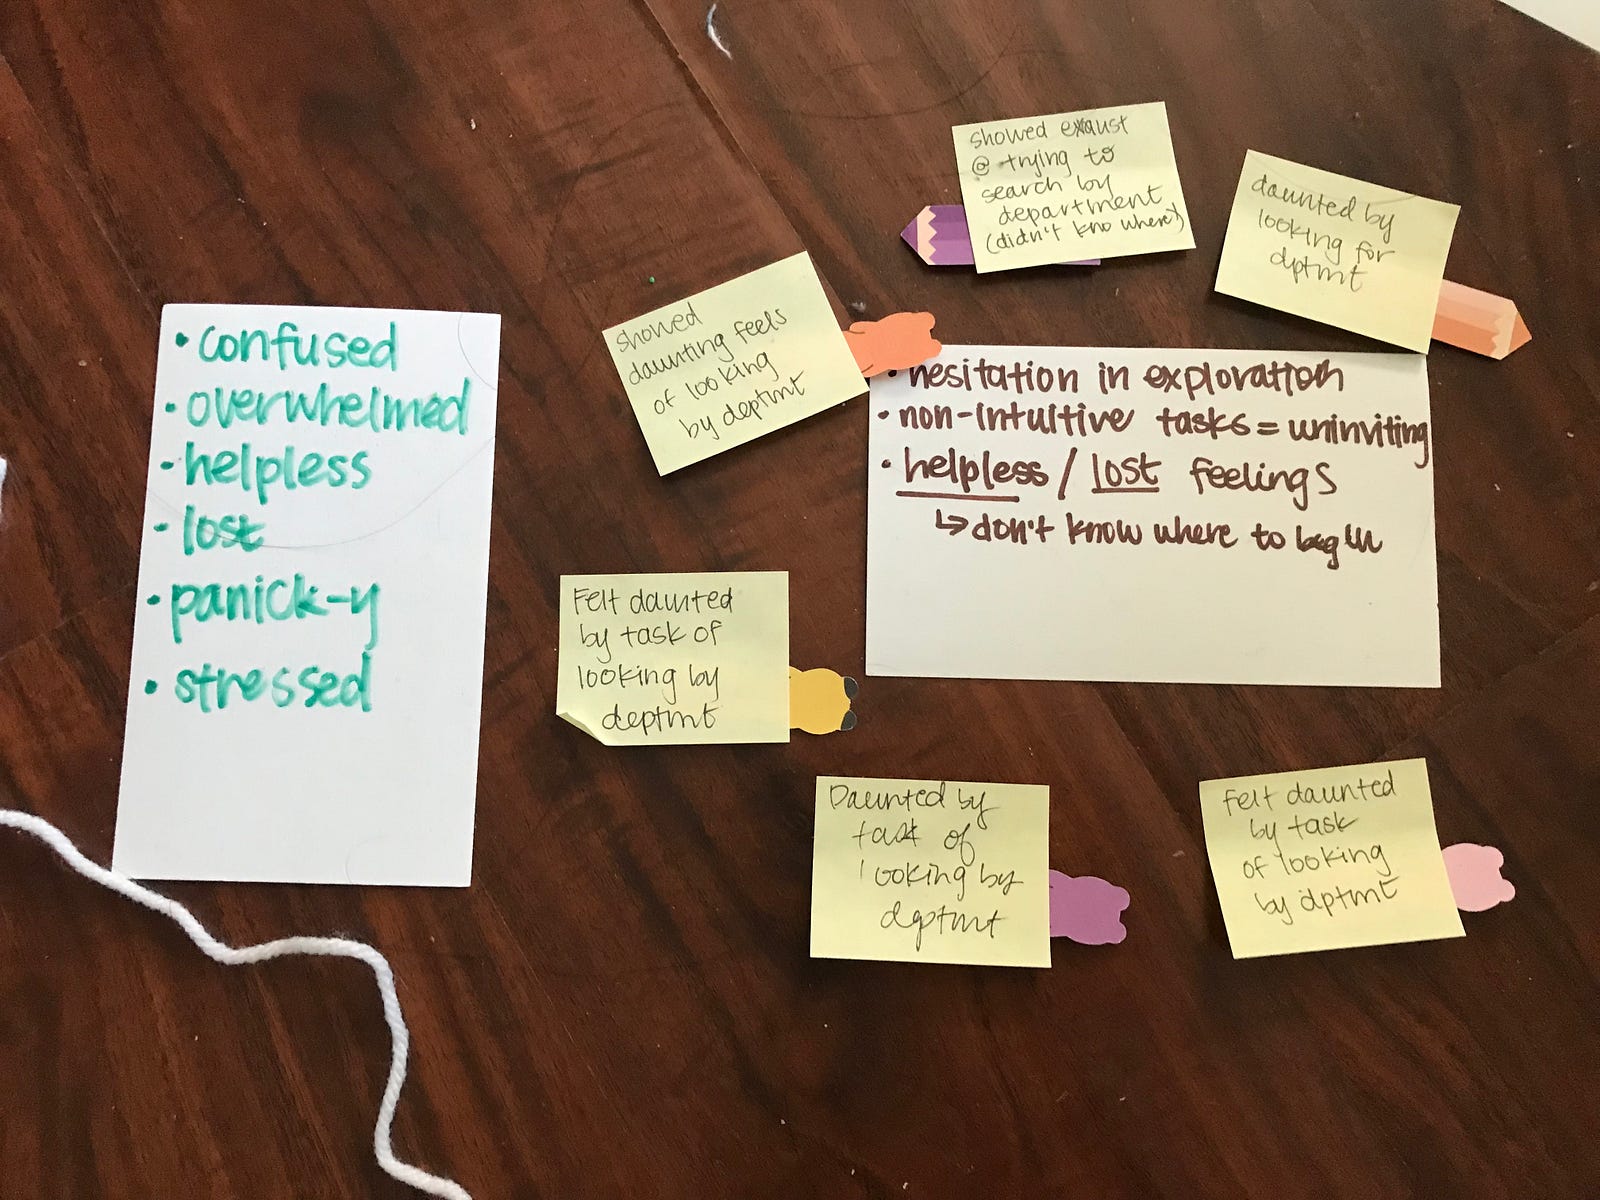 • confused
• overwhelmed
• helpless
• lost
• panick-y
• stressed
showed
daunting feels
of looking
by deptmt
showed exaust
@ trying to
search by
department
(didn't kno where)
daunted by
looking for
dptmt
• hesitation in exploration
• non-intuitive tasks = uninviting
• helpless / lost feelings
↳ don't know where to begin
Felt daunted
by task of
looking by
deptmt
Daunted by
task of
looking by
deptmt
Felt daunted
by task
of looking
by dptmt